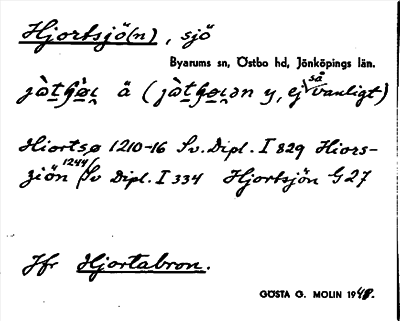 Hjortsjö(n), sjö
Byarums sn, Östbo hd, Jönköpings län.
ä ( y, ej så vanligt)
Hiortsø 1210-16 Sv. Dipl. I 829 Hiors-
ziön 1244 Sv Dipl. I 334 Hjortsjön G27
Jfr Hjortabron.
GÖSTA G. MOLIN 1948.